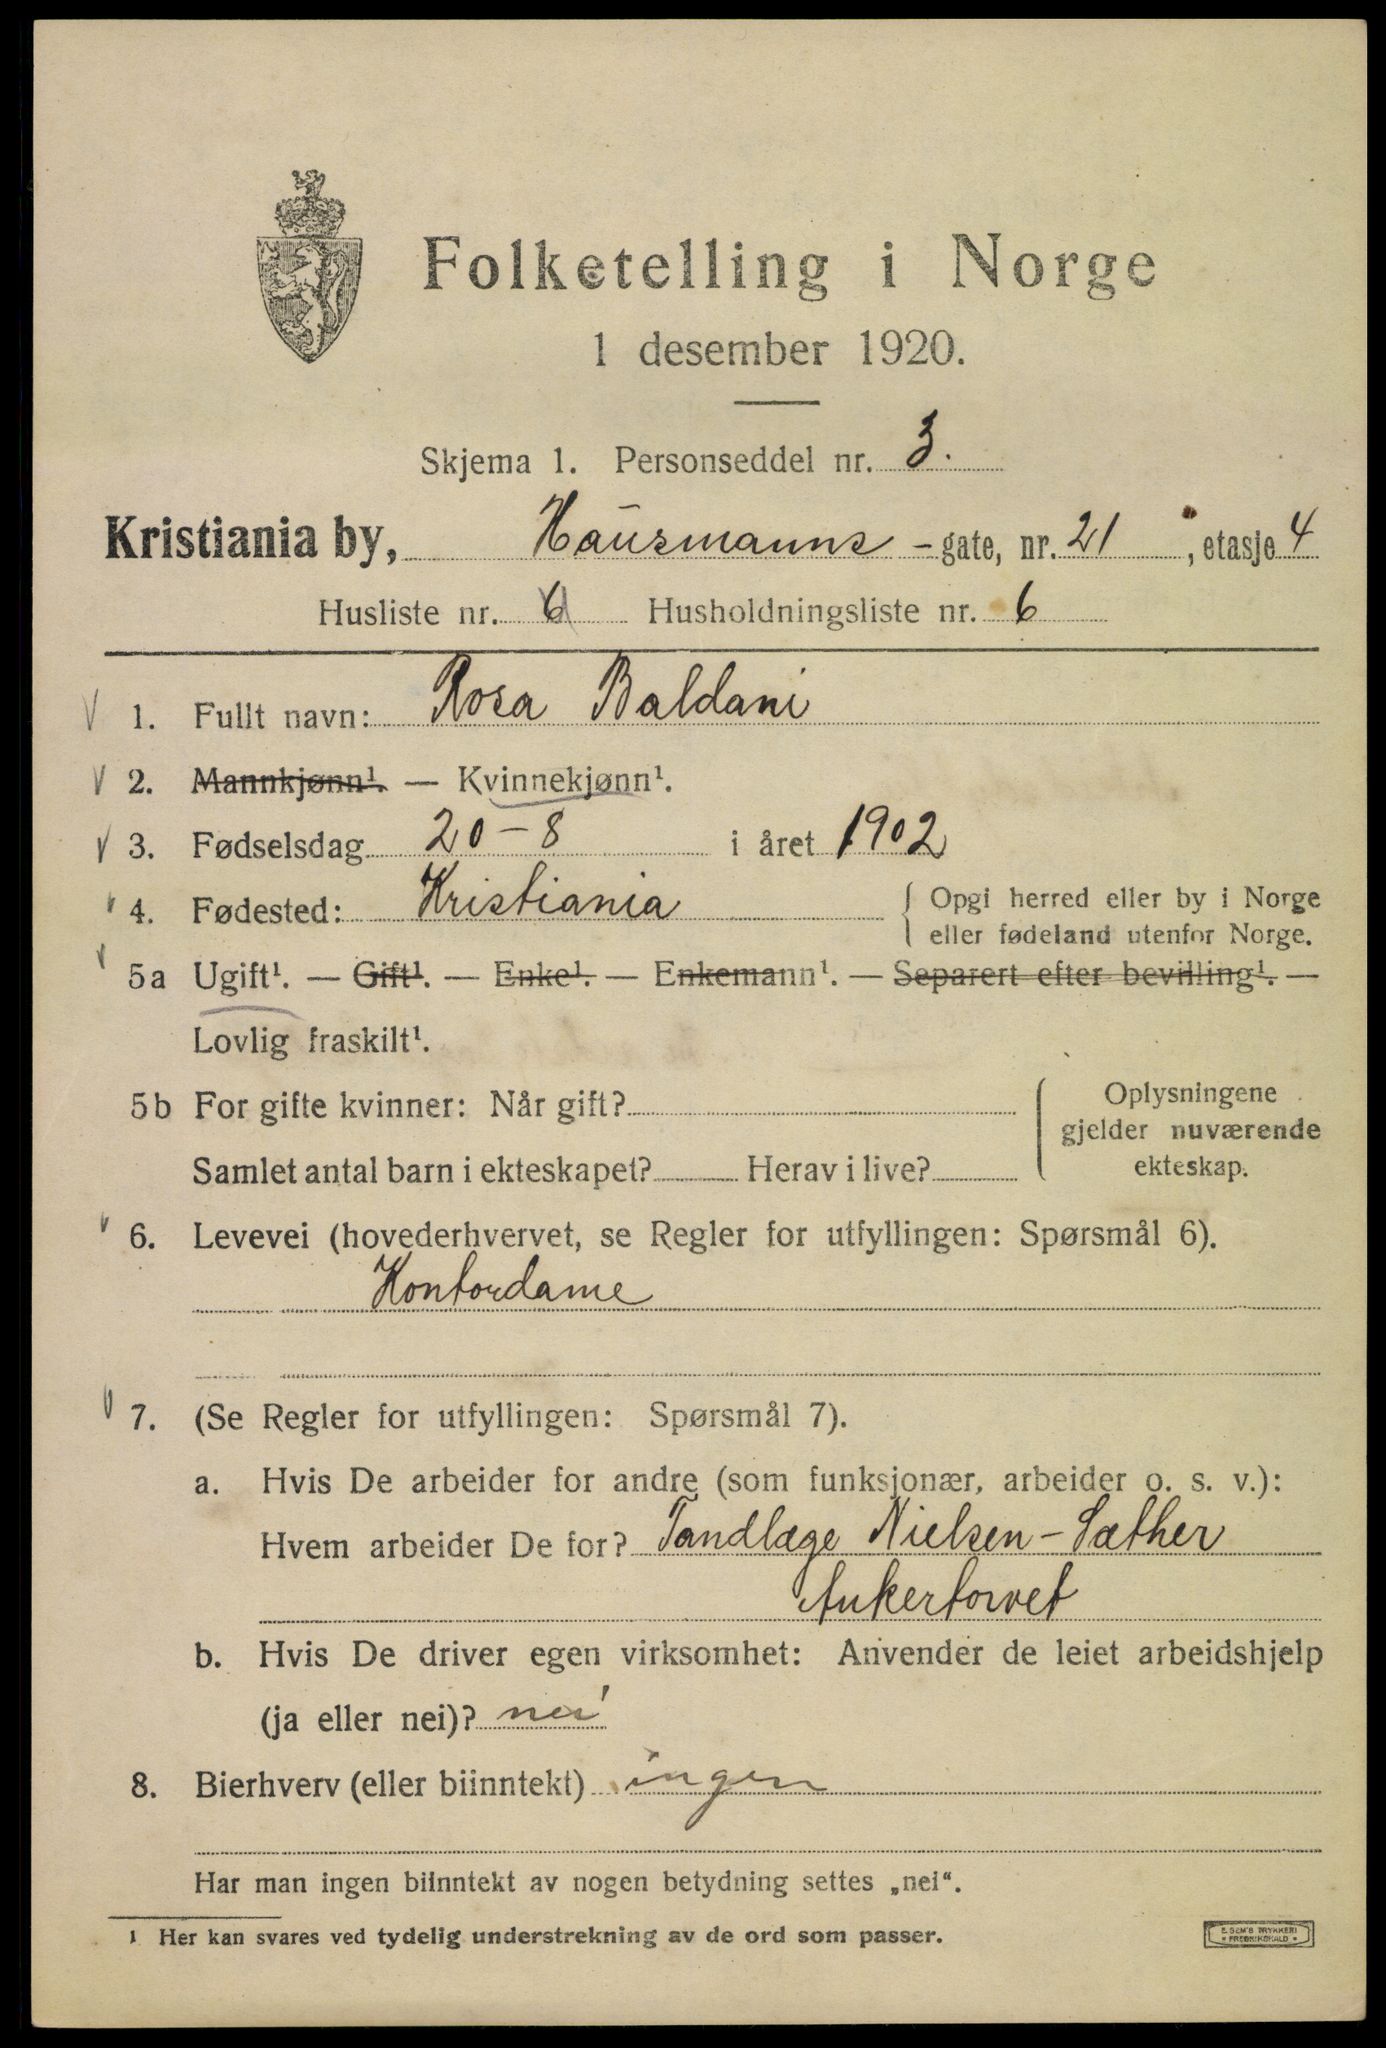 Folketelling i Norge
1 desember 1920.
Skjema 1. Personseddel nr. 3.
Kristiania by, Hausmanns - gate, nr. 21, etasje 4
Husliste nr. 6 Husholdningsliste nr. 6
1. Fullt navn: Rosa Baldani
2. Mannkjønn¹. — Kvinnekjønn¹.
3. Fødselsdag 20 - 8 i året 1902
4. Fødested: Kristiania { Opgi herred eller by i Norge
eller fødeland utenfor Norge.
5a Ugift¹. — Gift¹. — Enke¹. — Enkemann¹. — Separert efter bevilling¹. —
Lovlig fraskilt¹.
5b For gifte kvinner: Når gift?
Samlet antal barn i ekteskapet? Herav i live?
Oplysningene
gjelder nuværende
ekteskap.
6. Levevei (hovederhvervet, se Regler for utfyllingen: Spørsmål 6).
Kontordame
7. (Se Regler for utfyllingen: Spørsmål 7).
a. Hvis De arbeider for andre (som funksjonær, arbeider o. s. v.):
Hvem arbeider De for? Tandlæge Nielsen - Sæther
Ankertorvet
b. Hvis De driver egen virksomhet: Anvender de leiet arbeidshjelp
(ja eller nei)? nei
8. Bierhverv (eller biinntekt) ingen
Har man ingen biinntekt av nogen betydning settes „nei“.
1 Her kan svares ved tydelig understrekning av de ord som passer.
E. SEM'S TRYKKERI
FREDRIKSHALD